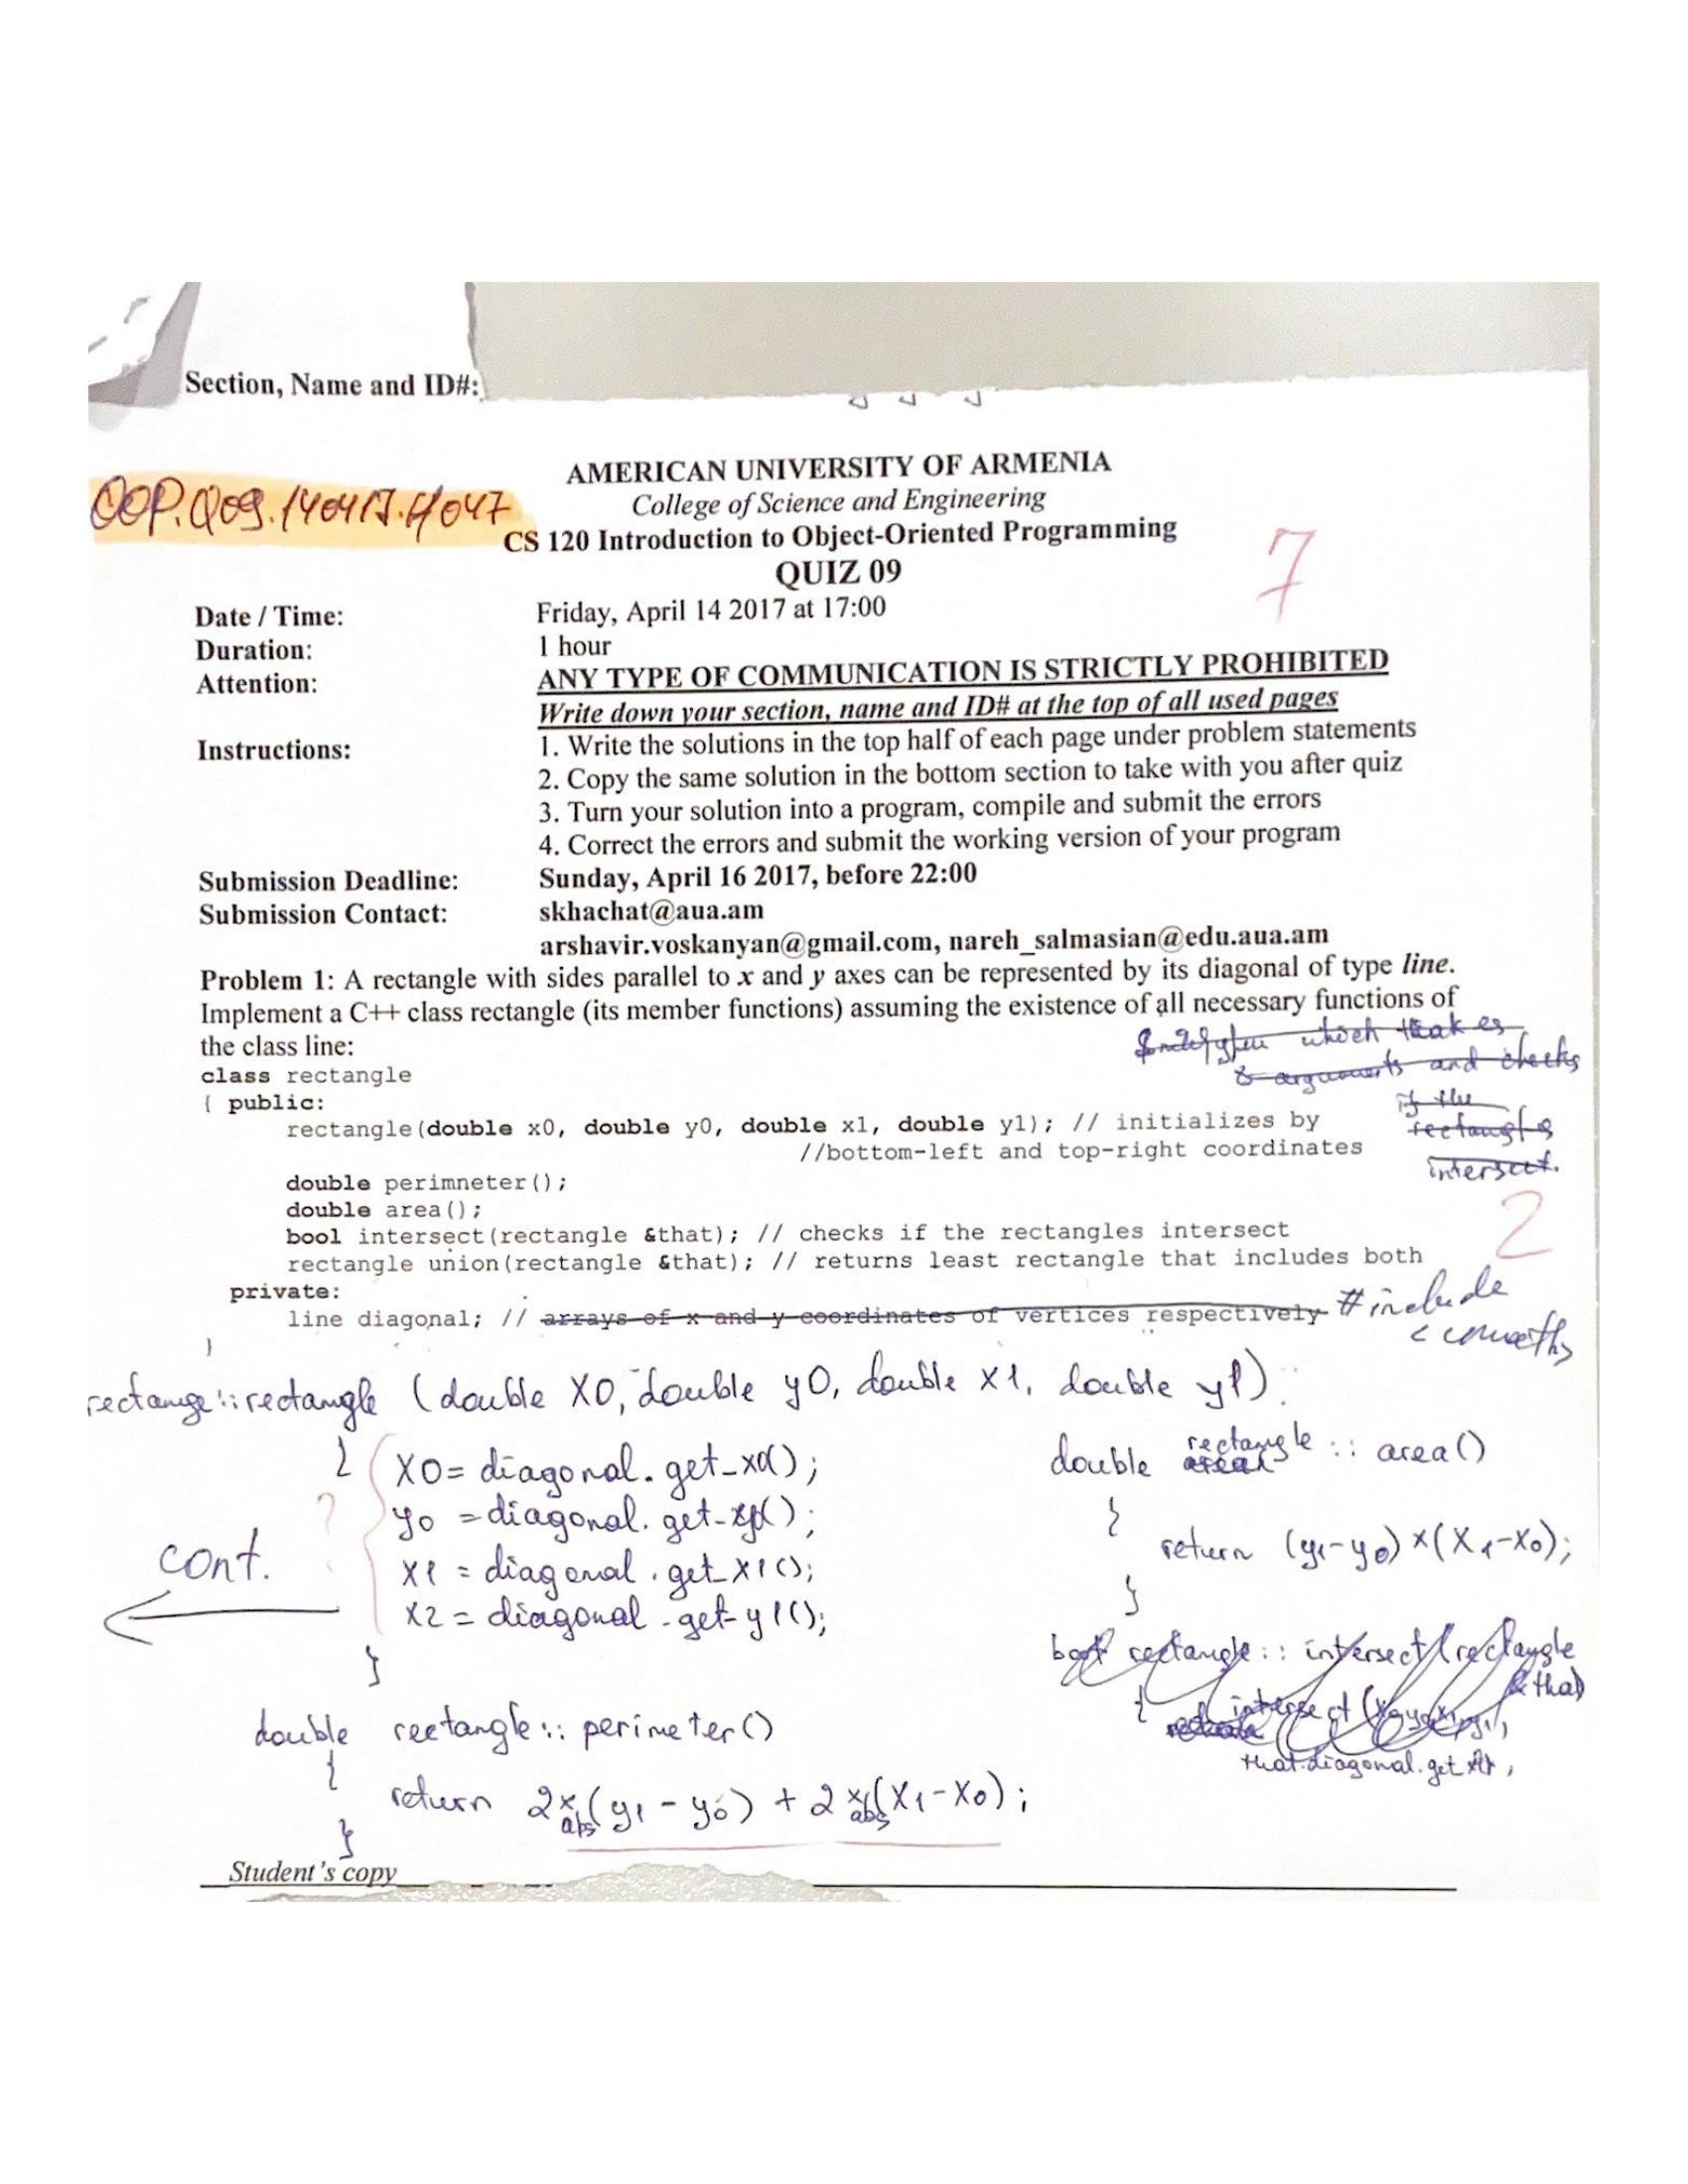 Section, Name and ID#:
AMERICAN UNIVERSITY OF ARMENIA
College of Science and Engineering
OOP.Q09.140417.H047
CS 120 Introduction to Object-Oriented Programming
QUIZ 09
7
Date / Time: Friday, April 14 2017 at 17:00
Duration: 1 hour
Attention: ANY TYPE OF COMMUNICATION IS STRICTLY PROHIBITED
Write down your section, name and ID# at the top of all used pages
Instructions: 1. Write the solutions in the top half of each page under problem statements
2. Copy the same solution in the bottom section to take with you after quiz
3. Turn your solution into a program, compile and submit the errors
4. Correct the errors and submit the working version of your program
Submission Deadline: Sunday, April 16 2017, before 22:00
Submission Contact: skhachat@aua.am
arshavir.voskanyan@gmail.com, nareh_salmasian@edu.aua.am
Problem 1: A rectangle with sides parallel to x and y axes can be represented by its diagonal of type line.
Implement a C++ class rectangle (its member functions) assuming the existence of all necessary functions of
the class line:
which takes
arguments and checks
if the
rectangles
intersect.
class rectangle
{ public:
rectangle(double x0, double y0, double x1, double y1); // initializes by
//bottom-left and top-right coordinates
double perimneter();
double area();
bool intersect(rectangle &that); // checks if the rectangles intersect
rectangle union(rectangle &that); // returns least rectangle that includes both
2
private:
line diagonal; // arrays of x and y coordinates of vertices respectively
#include
< cmath>
}
rectange::rectangle (double x0, double y0, double x1, double y1)
{ x0= diagonal.get_x0();
? y0 =diagonal.get_y0();
x1 = diagonal.get_x1();
x2 = diagonal.get_y1();
}
cont.
double rectangle:: perimeter()
{
return 2x abs(y1 - y0) + 2x abs(x1-x0);
}
double rectangle :: area()
{
return (y1-y0)x(x1-x0);
}
bool rectangle:: intersect(rectangle
&that)
{ intersect (x0,y0,x1,y1,
that.diagonal.get
Student's copy